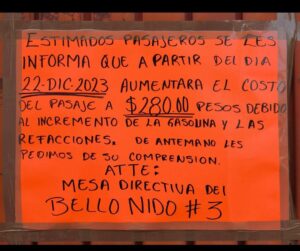 ESTIMADOS PASAJEROS SE LES
INFORMA QUE A PARTIR DEL DIA
22-DIC-2023 AUMENTARA EL COSTO
DEL PASAJE A $280.00 PESOS DEBIDO
AL INCREMENTO DE LA GASOLINA Y LAS
REFACCIONES. DE ANTEMANO LES
PEDIMOS DE SU COMPRENSION.
ATTE:
MESA DIRECTIVA DEL
BELLO NIDO #3